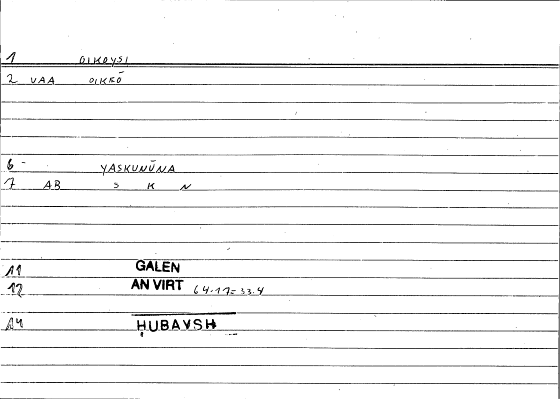 1 OIKOYSI
2 VAA OIKEÖ
6 - YASKUNÜNA
7 AB S K N
11 GALEN
12 AN VIRT 64.17=33.4
14 HUBAYSH